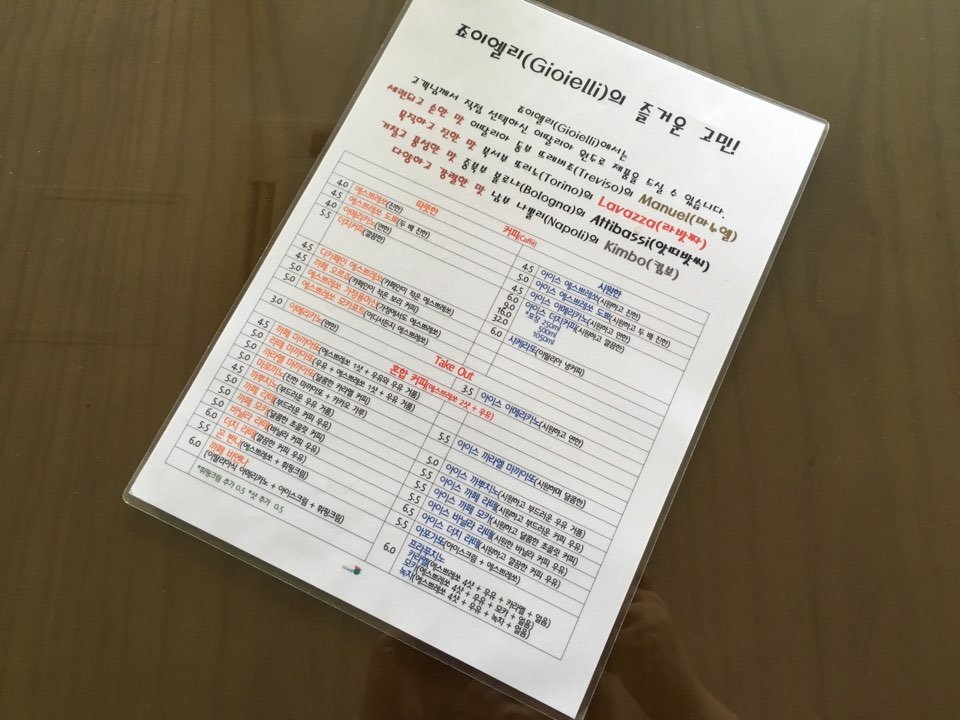 죠이엘리(Gioielli)의 즐거운 고민!
죠이엘리(Gioielli)에서는
고객님께서 직접 선택하신 이딸리아 원두로 제품을 드실 수 있습니다.
세련되고 순한 맛 이딸리아 동부 뜨레비죠(Treviso)의 Manuel(마누엘)
묵직하고 진한 맛 북서부 또리노(Torino)의 Lavazza(라밧짜)
거칠고 풍성한 맛 중북부 볼로냐(Bologna)의 Attibassi(앗띠밧씨)
다양하고 강렬한 맛 남부 나뽈리(Napoli)의 Kimbo(킴보)
커피Caffé
따뜻한
4.0 에스쁘레쏘(진한)
4.5 에스쁘레쏘 도삐(두 배 진한)
4.0 아메리카노(연한)
5.5 더치커피(깔끔한)
4.5 디카페인 에스쁘레쏘(카페인이 적은 에스쁘레쏘)
4.5 까페 오르조(카페인이 적은 보리 커피)
5.0 에스쁘레쏘 가정용머신(가정에서도 에스쁘레쏘)
5.0 에스쁘레쏘 모카포트(어디서든지 에스쁘레쏘)
시원한
4.5 아이스 에스쁘레쏘(시원하고 진한)
5.0 아이스 에스쁘레쏘 도삐(시원하고 두 배 진한)
4.5 아이스 아메리카노(시원하고 연한)
6.0 아이스 더치커피(시원하고 깔끔한)
9.0 *포장 250ml
16.0 500ml
32.0 1050ml
6.0 샤케라또(이딸리아 냉커피)
Take Out
3.0 아메리카노(연한)
3.5 아이스 아메리카노(시원하고 연한)
혼합 커피(에스쁘레쏘 2샷 + 우유)
4.5 까페 마끼아또(에스쁘레쏘 1샷 + 우유와 우유 거품)
5.0 라떼 마끼아또(우유 + 에스쁘레쏘 1샷 + 우유 거품)
5.0 까라멜 마끼아또(달콤한 카라멜 커피)
5.0 마로끼노(진한 마끼아또 + 카카오 가루)
4.5 까뿌치노(부드러운 우유 거품)
5.0 까페 라떼(부드러운 커피 우유)
5.0 까페 모카(달콤한 초콜릿 커피)
5.0 바닐라 라떼(바닐라 커피 우유)
6.0 더치 라떼(깔끔한 커피 우유)
5.5 꼰 빤나(에스쁘레쏘 + 휘핑크림)
6.0 까페 비엔나
(이딸리아식 아메리카노 + 아이스크림 + 휘핑크림)
*휘핑크림 추가 0.5 *샷 추가 0.5
5.5 아이스 까라멜 마끼아또(시원하며 달콤한)
5.0 아이스 까뿌치노(시원하고 부드러운 우유 거품)
5.5 아이스 까페 라떼(시원하고 부드러운 커피 우유)
5.5 아이스 까페 모카(시원하고 달콤한 초콜릿 커피)
5.5 아이스 바닐라 라떼(시원한 바닐라 커피 우유)
6.5 아이스 더치 라떼(시원하고 깔끔한 커피 우유)
5.5 아포가또(아이스크림 + 에스쁘레쏘)
6.0 프라뿌치노
카라멜(에스쁘레쏘 4샷 + 우유 + 카라멜 + 얼음)
모카(에스쁘레쏘 4샷 + 우유 + 모카 + 얼음)
녹차(에스쁘레쏘 4샷 + 우유 + 녹차 + 얼음)